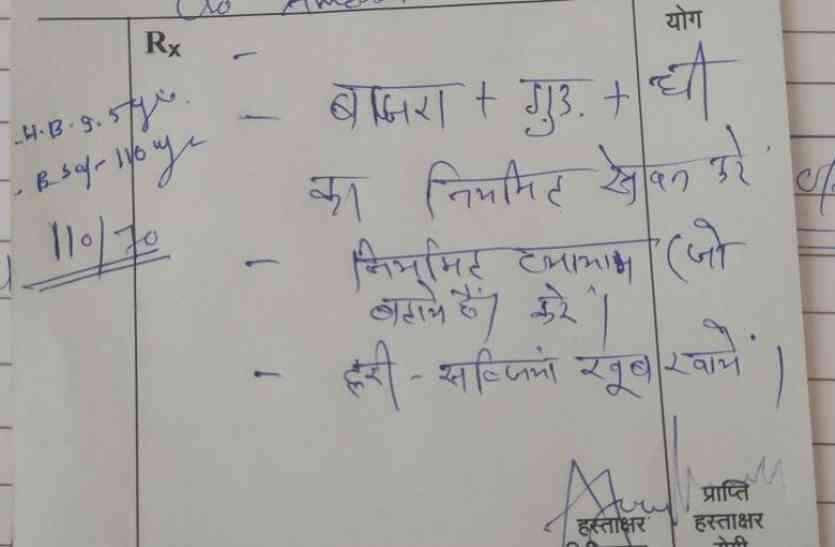 योग
Rx -
- बाजरा + गुड़. + घी
का नियमित सेवन करे
- नियमित व्यायाम (जो
बताये हैं) करें।
- हरी - सब्जियां खूब खायें।
H.B. 9.5
110/70
हस्ताक्षर
प्राप्ति
हस्ताक्षर